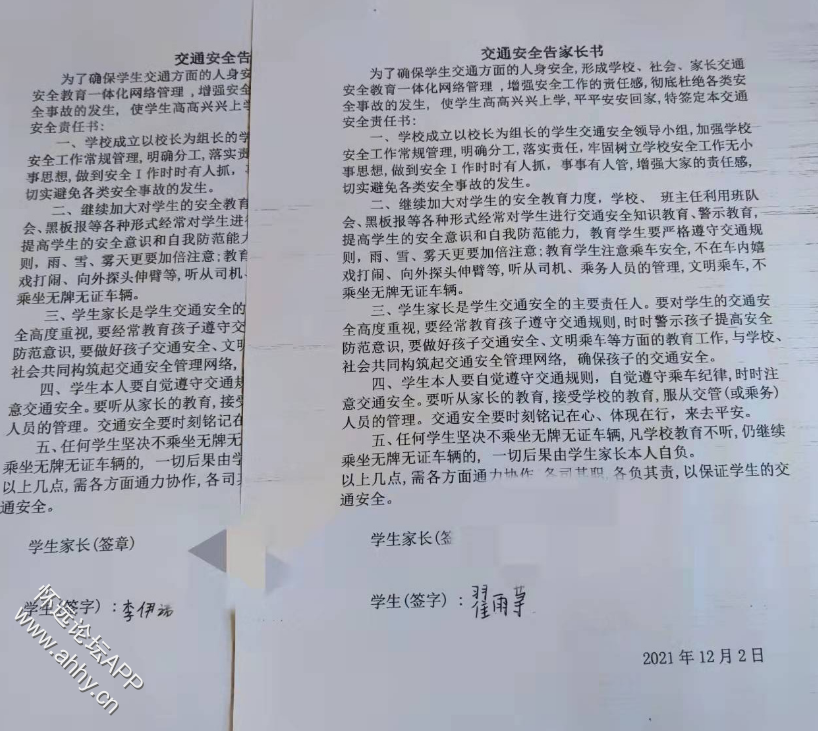 交通安全告
为了确保学生交通方面的人身安
安全教育一体化网络管理，增强安全
全事故的发生， 使学生高高兴兴上学
安全责任书:
一、学校成立以校长为组长的学
安全工作常规管理, 明确分工, 落实责
事思想, 做到安全 I 作时时有人抓，
切实避免各类安全事故的发生。
二、继续加大对学生的安全教育
会、黑板报等各种形式经常对学生进行
提高学生的安全意识和自我防范能力
则，雨、雪、雾天更要加倍注意; 教育
戏打闹、向外探头伸臂等, 听从司机、
乘坐无牌无证车辆。
三、学生家长是学生交通安全的
全高度重视, 要经常教育孩子遵守交
防范意识, 要做好孩子交通安全、文明
社会共同构筑起交通安全管理网络,
四、学生本人要自觉遵守交通规
意交通安全。要听从家长的教育, 接受
人员的管理。交通安全要时刻铭记在
五、任何学生坚决不乘坐无牌无
乘坐无牌无证车辆的， 一切后果由学
以上几点, 需各方面通力协作, 各司其
通安全。
学生家长(签章)
学生(签字) : 李伊
怀远论坛APP
www.ahhy.cn
交通安全告家长书
为了确保学生交通方面的人身安全, 形成学校、社会、家长交通
安全教育一体化网络管理 , 增强安全工作的责任感, 彻底杜绝各类安
全事故的发生， 使学生高高兴兴上学, 平平安安回家, 特签定本交通
安全责任书:
一、学校成立以校长为组长的学生交通安全领导小组, 加强学校
安全工作常规管理, 明确分工, 落实责任, 牢固树立学校安全工作无小
事思想, 做到安全 I 作时时有人抓， 事事有人管, 增强大家的责任感,
切实避免各类安全事故的发生。
二、继续加大对学生的安全教育力度，学校、 班主任利用班队
会、黑板报等各种形式经常对学生进行交通安全知识教育、警示教育,
提高学生的安全意识和自我防范能力， 教育学生要严格遵守交通规
则，雨、雪、雾天更要加倍注意; 教育学生注意乘车安全, 不在车内嬉
戏打闹、向外探头伸臂等, 听从司机、乘务人员的管理, 文明乘车, 不
乘坐无牌无证车辆。
三、学生家长是学生交通安全的主要责任人。要对学生的交通安
全高度重视, 要经常教育孩子遵守交通规则, 时时警示孩子提高安全
防范意识, 要做好孩子交通安全、文明乘车等方面的教育工作, 与学校、
社会共同构筑起交通安全管理网络， 确保孩子的交通安全。
四、学生本人要自觉遵守交通规则，自觉遵守乘车纪律, 时时注
意交通安全。要听从家长的教育, 接受学校的教育, 服从交管(或乘务)
人员的管理。交通安全要时刻铭记在心、体现在行，来去平安。
五、任何学生坚决不乘坐无牌无证车辆, 凡学校教育不听, 仍继续
乘坐无牌无证车辆的， 一切后果由学生家长本人自负。
以上几点, 需各方面通力协作, 各司其职, 各负其责, 以保证学生的交
通安全。
学生家长(签
学生(签字) : 翟雨
2021 年 12 月 2 日